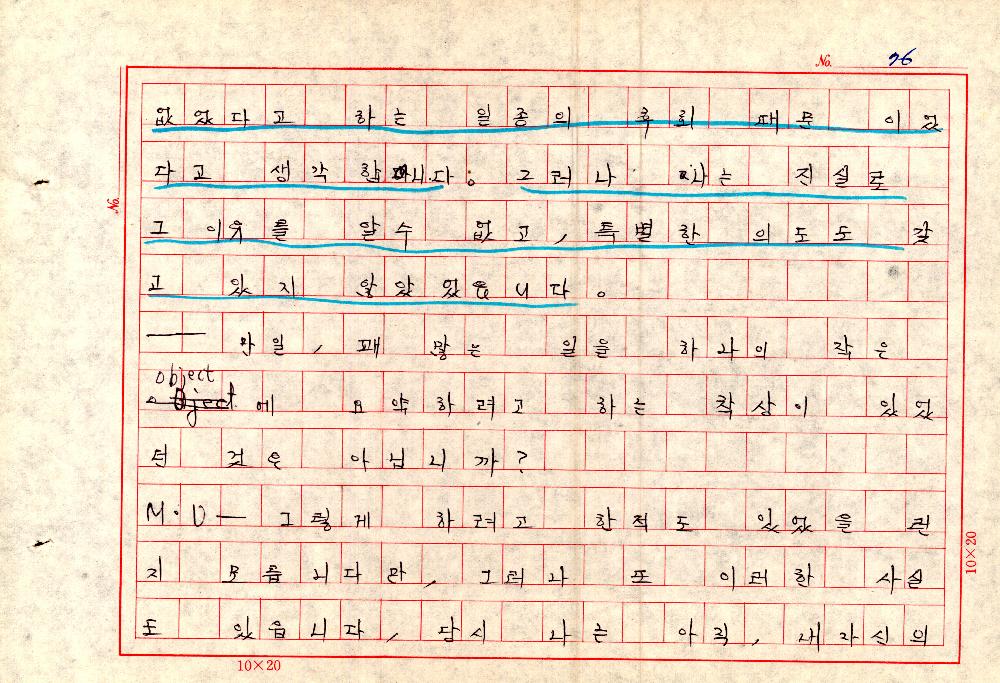 No. 76
없었다고 하는 일종의 후회 때문 이었
다고 생각 합니다. 그러나 나는 진실로
No.
그 이유를 알수 없고, 특별한 의도도 갖
고 있지 않았 었읍니다.
— 만일, 꽤 많은 일을 하나의 작은
object
에 요약하려고 하는 착상이 있었
던 것은 아닙니까?
M·D— 그렇게 하려고 한적도 있었을 런
지 모릅니다만, 그러나 또 이러한 사실
도 있읍니다, 당시 나는 아직, 내자신의
10×20
10×20